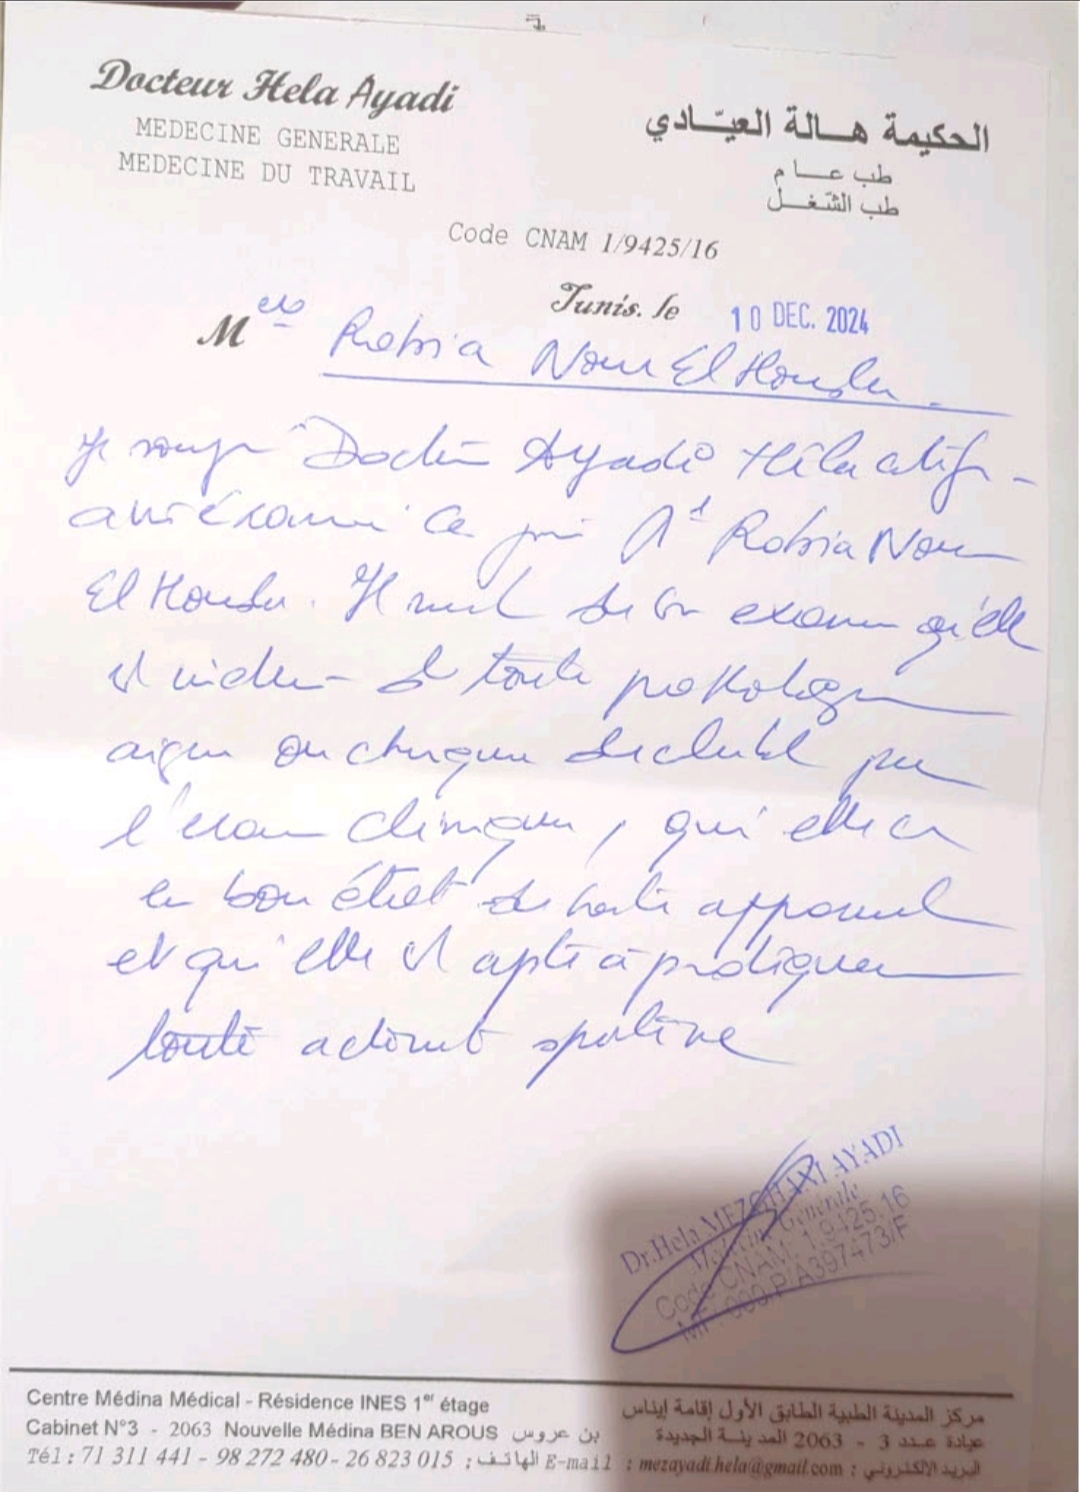 Docteur Hela Ayadi
MEDECINE GENERALE
MEDECINE DU TRAVAIL
الحكيمة هالة العيّادي
طب عام
طب الشّغل
Code CNAM 1/9425/16
Tunis. le 10 DEC. 2024
M elle Robia Nour El Houda.
Je Docteur Ayadi Héla
avoir examiné ce jour Robia Nour
El Houda. Il de son examen qu'elle
est de toute pathologie
aigue ou chronique décelable par
l'examen clinique, qu'elle est
en bon état de santé apparent
et qu'elle est apte à pratiquer
toute activité sportive
Dr.Hela MEZGHANI AYADI
Médecine Générale
Code CNAM: 1.9425.16
MF: 000.P/A397473/F
Centre Médina Médical - Résidence INES 1er étage
Cabinet N°3 - 2063 Nouvelle Médina BEN AROUS بن عروس
Tél : 71 311 441 - 98 272 480 - 26 823 015 : الهاتف
مركز المدينة الطبية الطابق الأول إقامة إيناس
عيادة عدد 3 - 2063 المدينة الجديدة
E-mail : mezayadi.hela@gmail.com : البريد الالكتروني